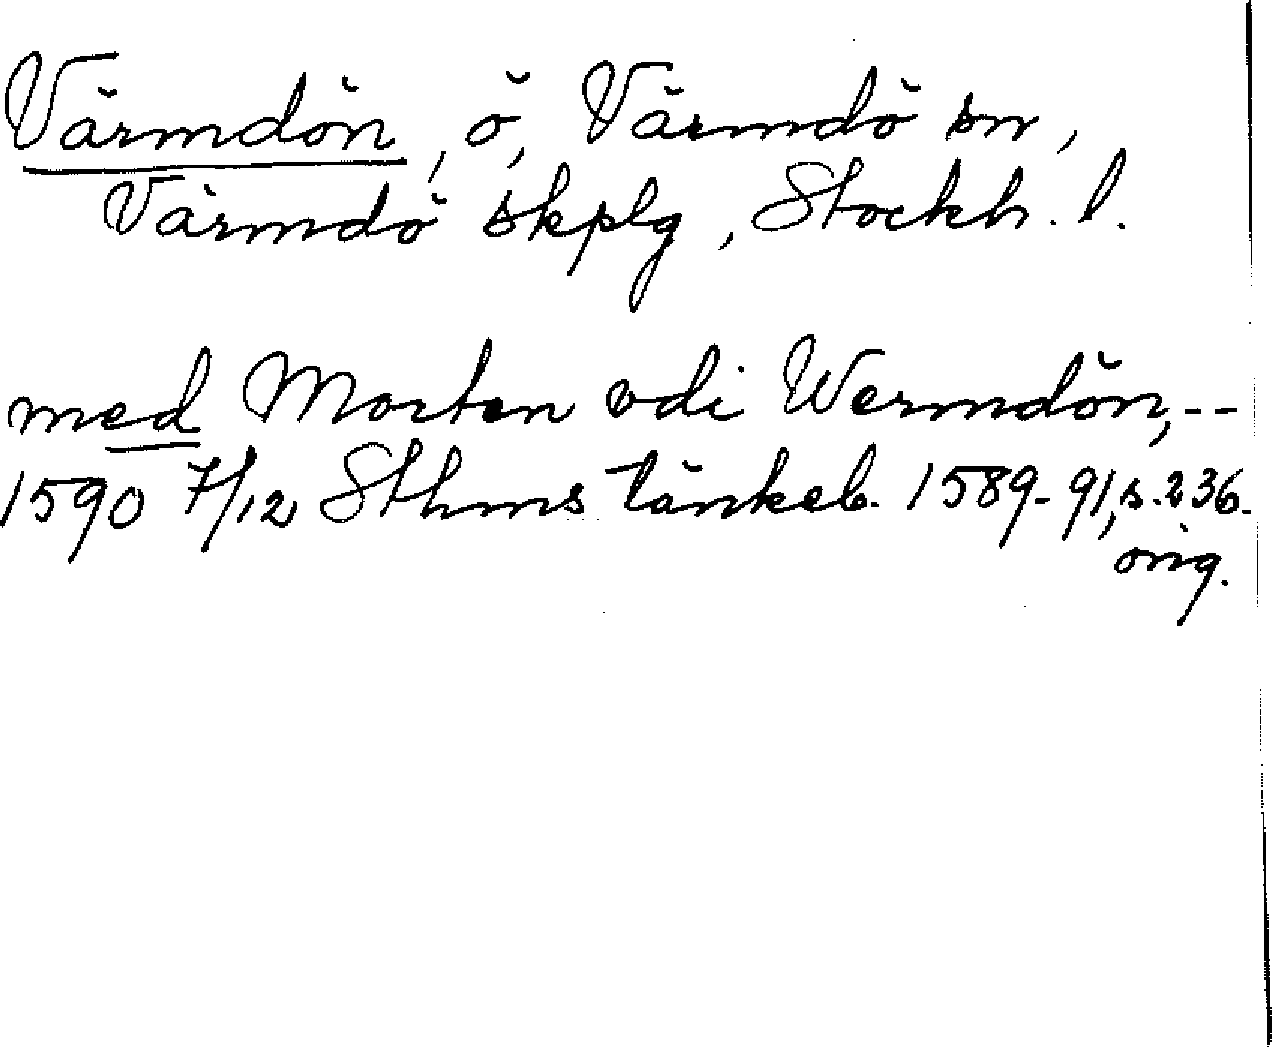 Värmdön, ö, Värmdö sn,
Värmdö skplg, Stockh. l.
med Morten vdi Wermdön,--
1590 7/12 Sthms tänkeb. 1589-91, s. 236.
orig.